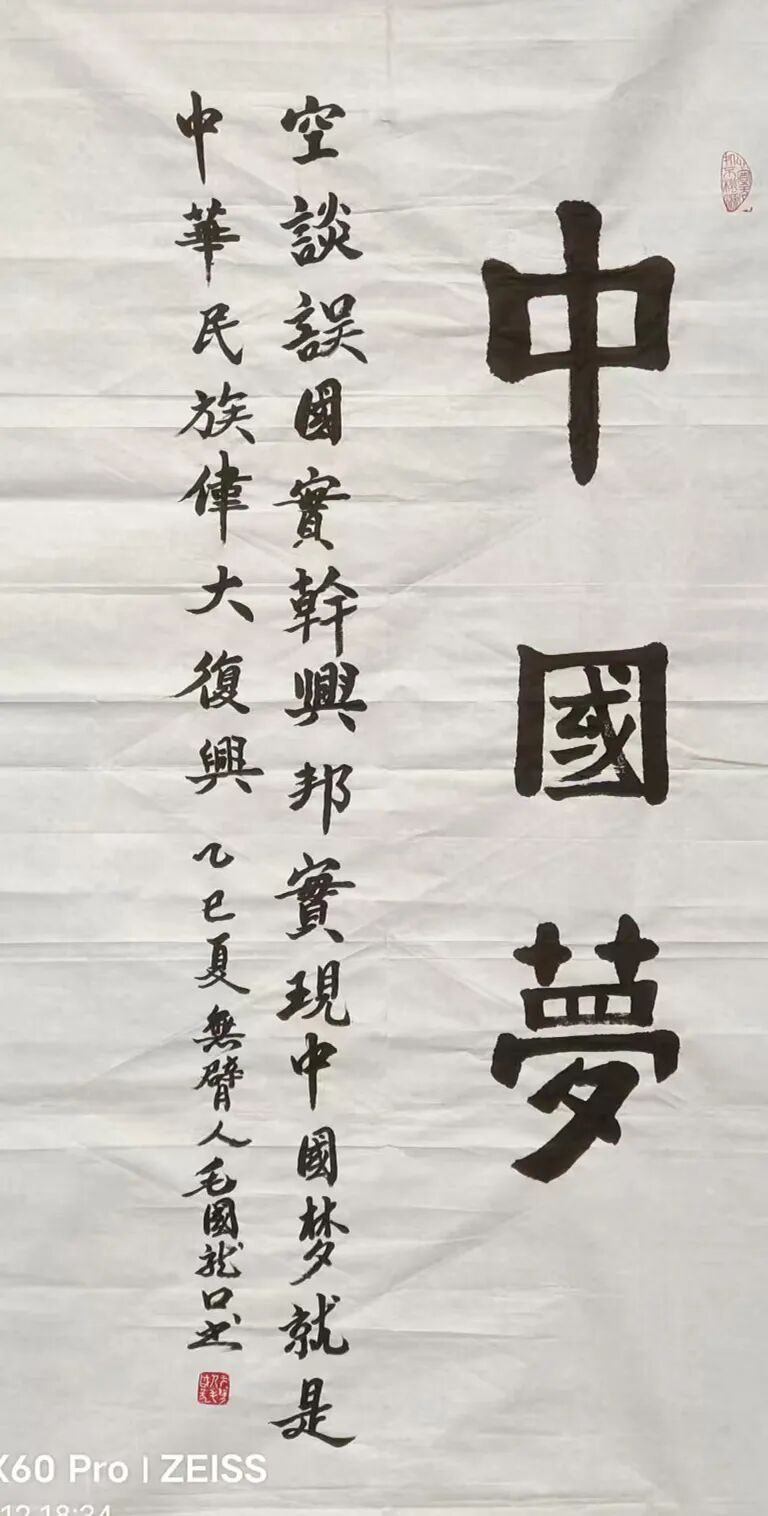 中國夢
空談誤國實幹興邦實現中國梦就是
中華民族偉大復興 乙巳夏 無臂人毛國龍口书
X60 Pro | ZEISS